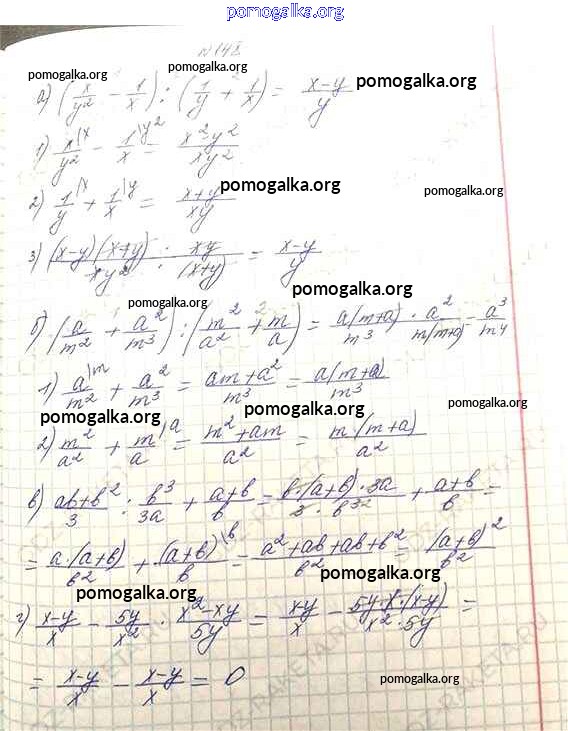 pomogalka.org
№ 148
pomogalka.org
а) (x/y² - 1/x) : (1/y + 1/x) = (x-y)/y
pomogalka.org
pomogalka.org
1) x\x/y² - 1\y²/x = (x²-y²)/(xy²)
2) 1\x/y + 1\y/x = (x+y)/(xy)
pomogalka.org
pomogalka.org
3) (x-y)(x+y)/(xy²) · xy/(x+y) = (x-y)/y
pomogalka.org
pomogalka.org
pomogalka.org
б) (a/m² + a²/m³) : (m²/a² + m/a) = a(m+a)/m³ · a²/(m(m+a)) = a³/m⁴
1) a\m/m² + a²/m³ = (am+a²)/m³ = a(m+a)/m³
pomogalka.org
pomogalka.org
pomogalka.org
2) m²/a² + m\a/a = (m²+am)/a² = m(m+a)/a²
pomogalka.org
в) (ab+b²)/3 : b³/(3a) + (a+b)/b = b·(a+b)·3a/(3·b³) + (a+b)/b =
= a·(a+b)/b² + (a+b)\b/b = (a²+ab+ab+b²)/b² = (a+b)²/b²
pomogalka.org
pomogalka.org
г) (x-y)/x - 5y/x² · (x²-xy)/(5y) = (x-y)/x - 5y·x·(x-y)/(x²·5y) =
= (x-y)/x - (x-y)/x = 0
pomogalka.org
pomogalka.org